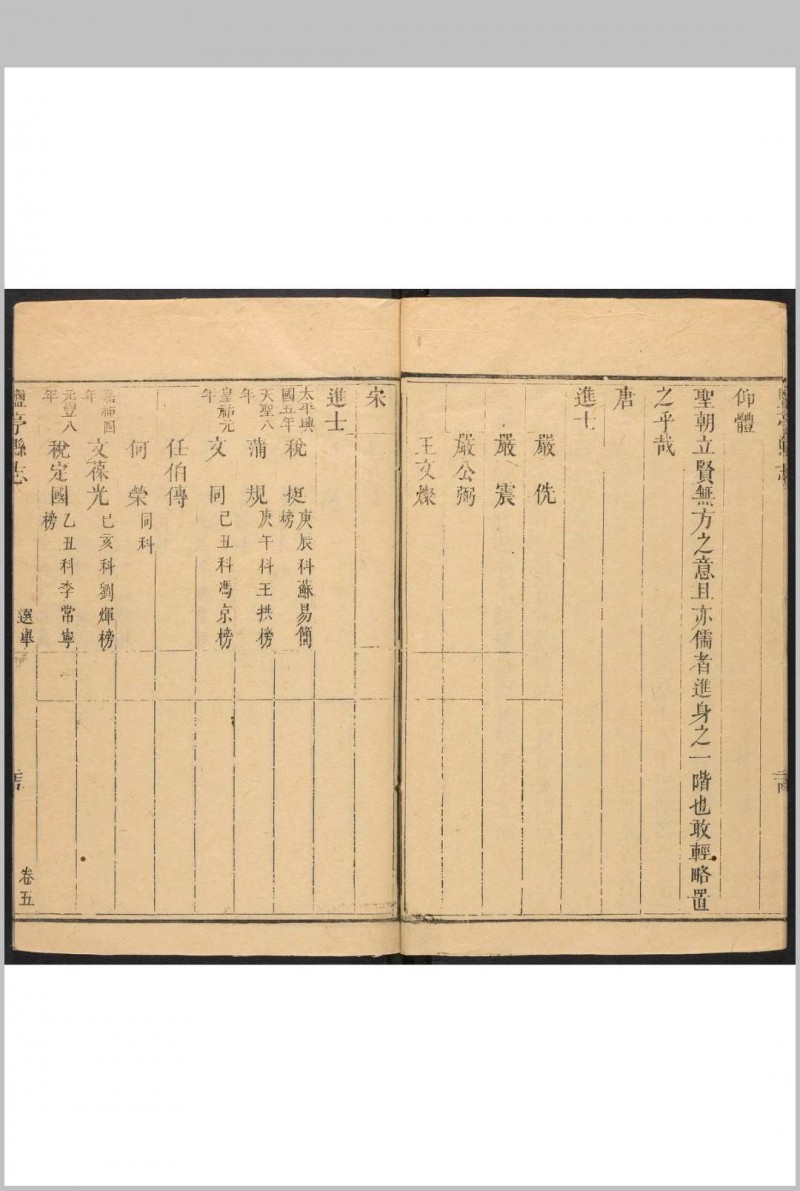 仰體
聖朝立賢無方之意且亦儒者進身之一階也敢輕略置
之乎哉
唐
進士
嚴侁
嚴震
嚴公弼
王文燦
宋
進士
太平興國五年 稅挺 庚辰科蘇易簡榜
天聖八年 蒲規 庚午科王拱榜
皇祐元年 文同 己丑科馮京榜
任伯傳
何榮 同科
嘉祐四年 文葆光 己亥科劉煇榜
元豐八年 稅定國 乙丑科李常寧榜
鹽亭縣志 選舉 卷五